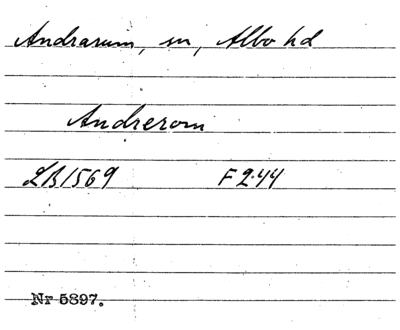 Andrarum, sn, Albo hd
Andrerom
LB 1569 F 2:44
Nr 5897.